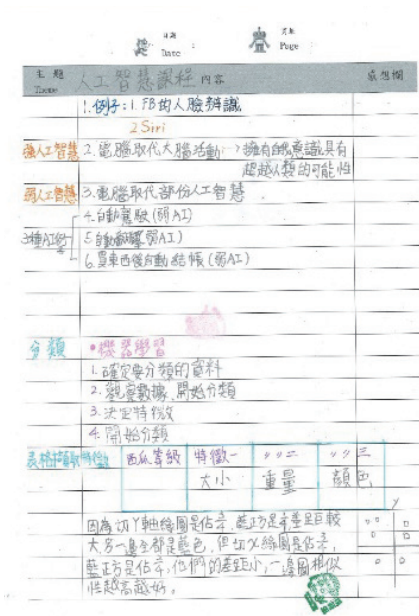 日期 Date 頁數 Page
主題 Theme 人工智慧課程 內容 感想欄
1.例子:1.FB的人臉辨識
2 Siri
強人工智慧 2.電腦取代大腦活動→擁有自我意識具有
超越人類的可能性
弱人工智慧 3.電腦取代部份人工智慧
4.自動駕駛(弱AI)
3種AI 5自動 (弱AI)
6.買東西後自動結帳(弱AI)
分類 •機器學習
1.確定要分類的資料
2.觀察數據,開始分類
3.決定特徵
4.開始分類
表格擷取特徵 西瓜等級 特徵一 〃〃二 〃〃三
大小 重量 顏色
因為切Y軸 圖是佔 ,藍正方是 差距較 y
大,另一邊全都是藍色,但切X 圖是佔 ,
藍正方是佔 ,他們的差距小,一邊圖相似
性越高越好。